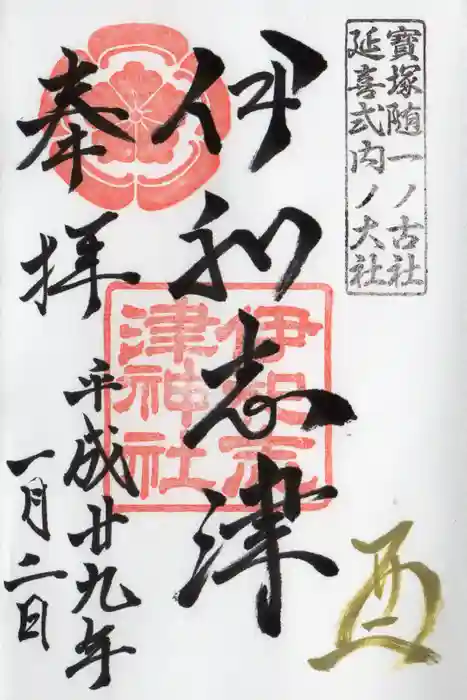 寶塚随一ノ古社
延喜式内ノ大社
伊和志津
伊和志
津神社
奉拝
平成廿九年
一月二日
酉